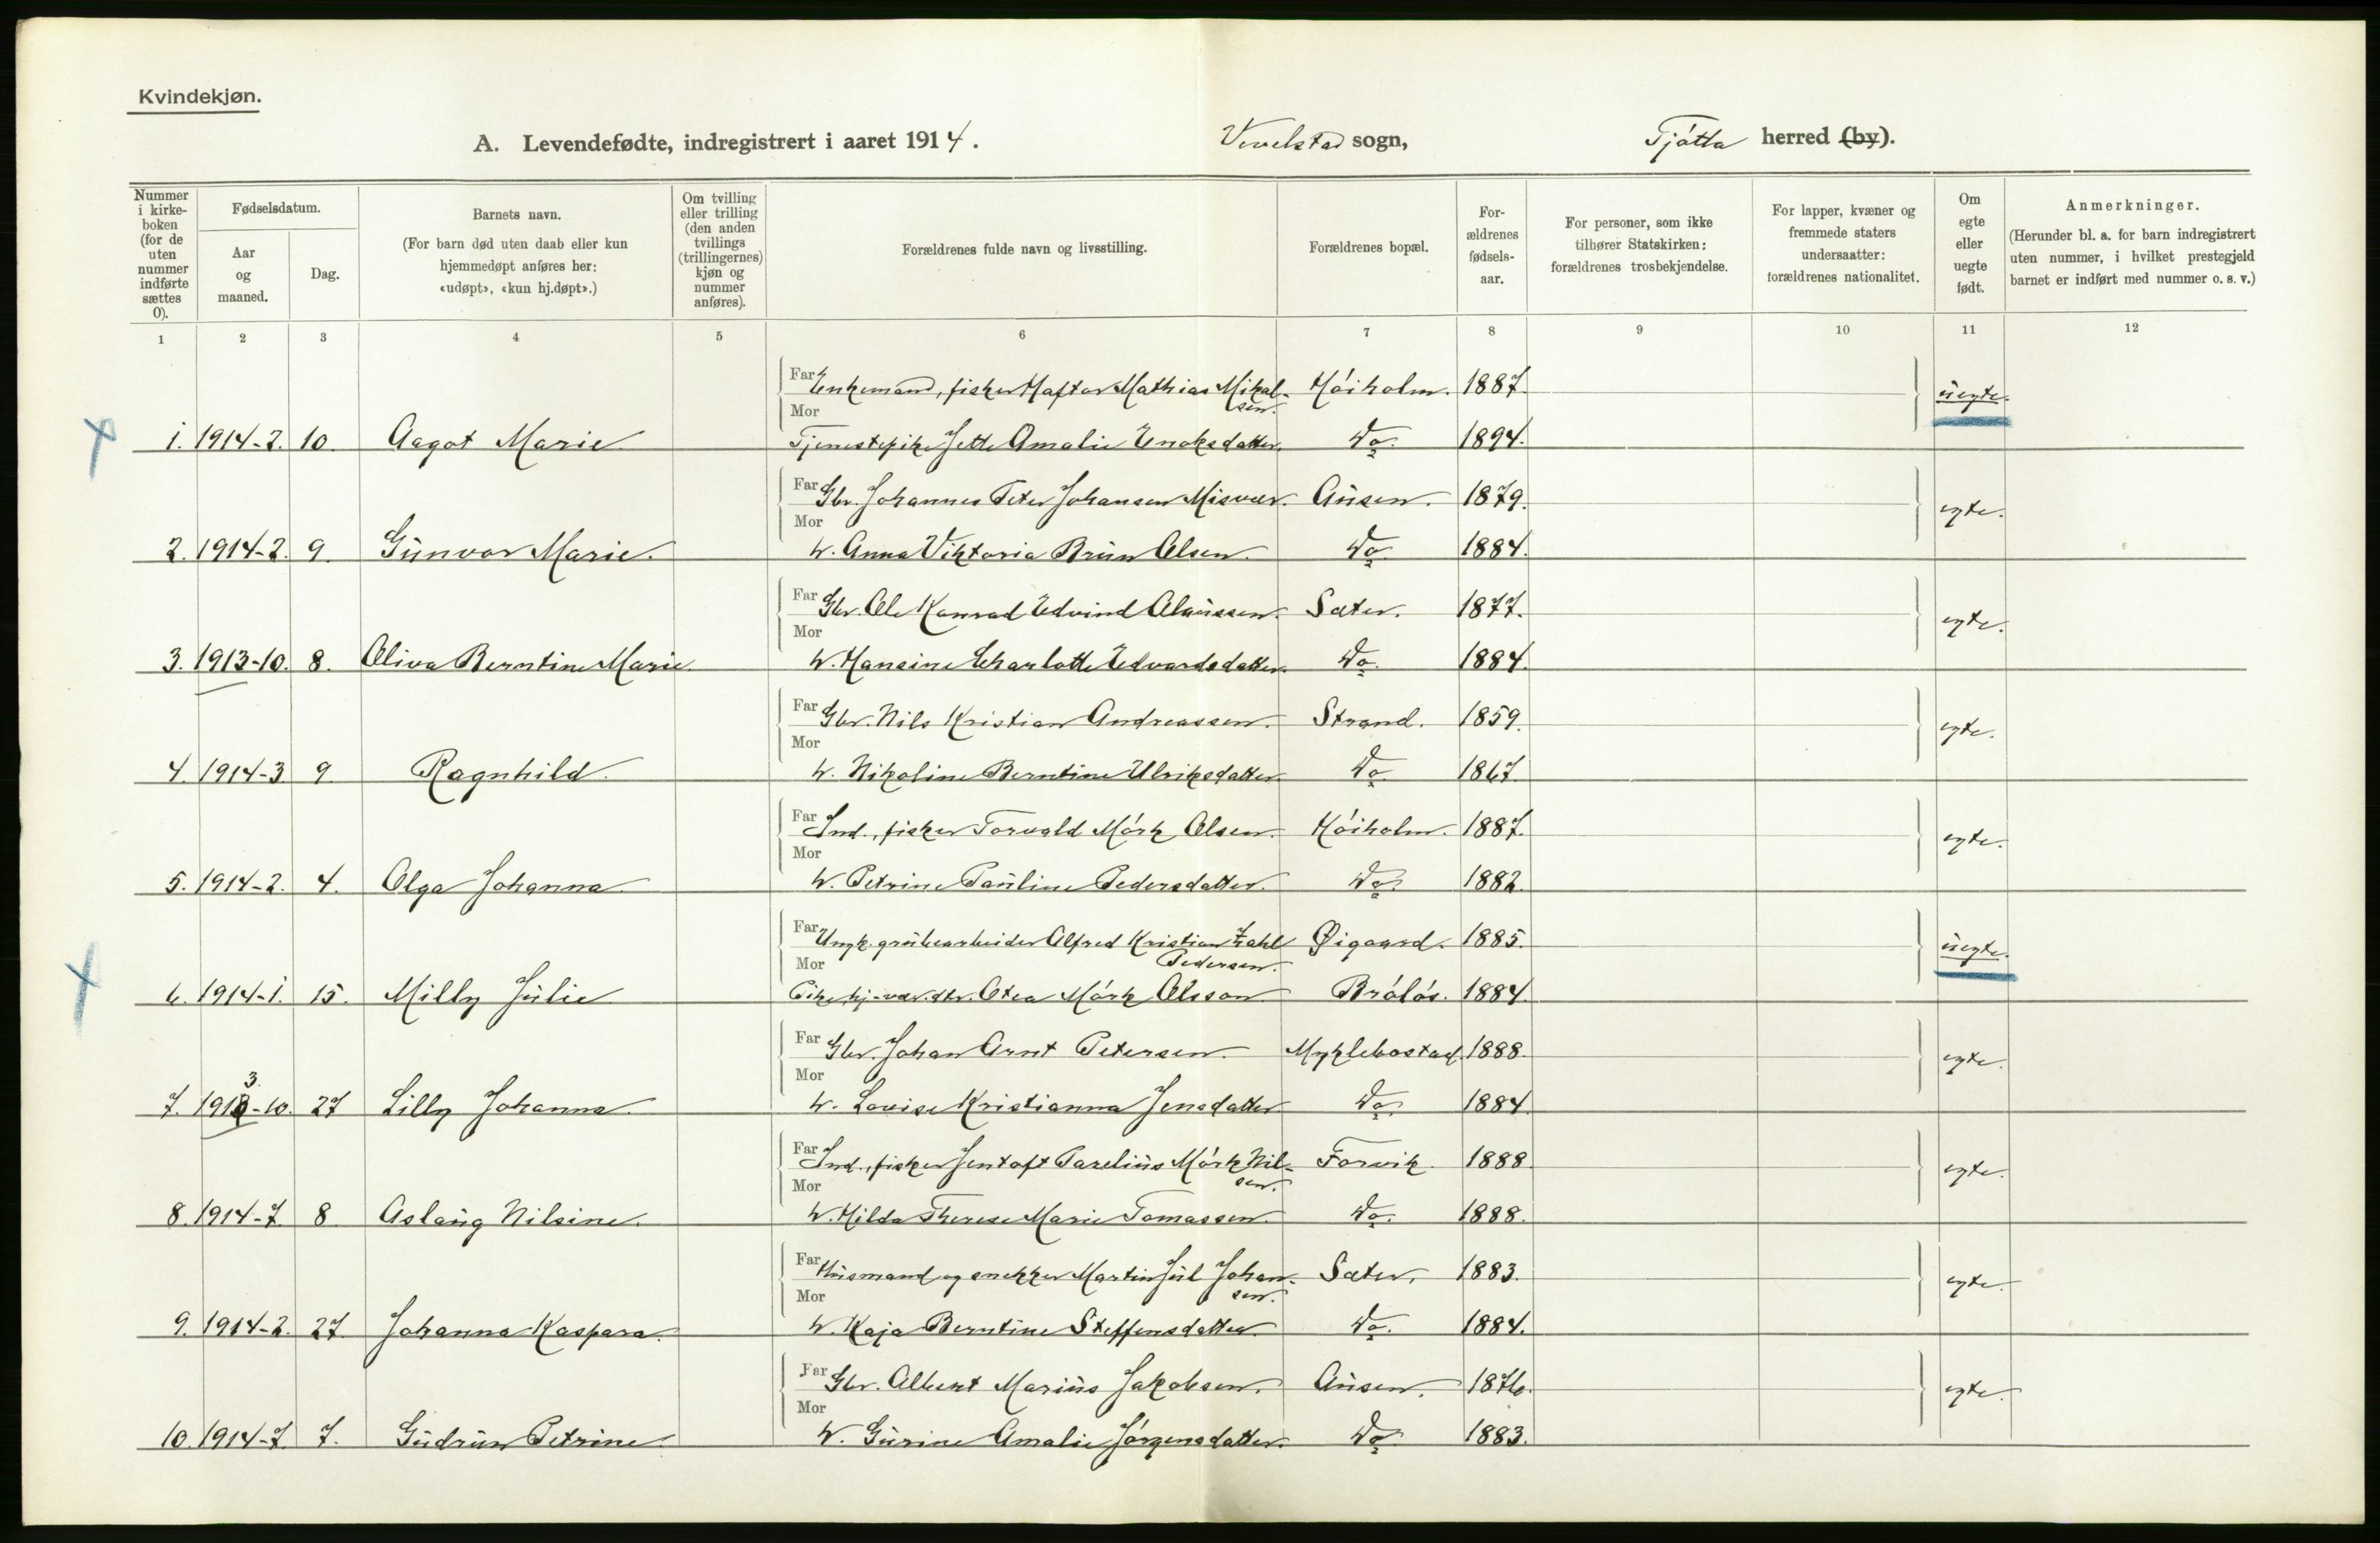 Kvindekjøn.
A. Levendefødte, indregistrert i aaret 1914. Vevelstad sogn, Tjótta herred (by).
Nummer i kirkeboken (for de uten nummer indførte sættes 0).
Fødselsdatum.
Aar og maaned.
Dag.
Barnets navn.
(For barn død uten daab eller kun hjemmedøpt anføres her: «udøpt», «kun hj.døpt».)
Om tvilling eller trilling (den anden tvillings (trillingernes) kjøn og nummer anføres).
Forældrenes fulde navn og livsstilling.
Forældrenes bopæl.
Forældrenes fødselsaar.
For personer, som ikke tilhører Statskirken: forældrenes trosbekjendelse.
For lapper, kvæner og fremmede staters undersaatter: forældrenes nationalitet.
Om egte eller uegte født.
Anmerkninger.
(Herunder bl. a. for barn indregistrert uten nummer, i hvilket prestegjeld barnet er indført med nummer o. s. v.)
1 2 3 4 5 6 7 8 9 10 11 12
Far Enkemand, fisker Haftor Mathias Mikalsen. Hóiholm. 1887. uegte.
Mor
1. 1914-2. 10. Aagot Marie Tjenestepike Jette Amalie Enoksdatter. Do. 1894.
Far Gbr. Johannes Peter Johansen Misvær. Ausen. 1879. egte.
Mor
2. 1914-2. 9. Gunvor Marie. H. Anna Viktoria Brun Olsen. Do. 1884.
Far Gbr. Ole Konrad Edvind Olaussen. Sæter. 1877. egte.
Mor
3. 1913-10. 8. Oliva Berntine Marie. H. Hansine Charlotte Edvardsdatter. Do. 1884.
Far Gbr. Nils Kristian Andreassen. Strand. 1859. egte.
Mor
4. 1914-3 9. Ragnhild. H. Nikoline Berntine Ulriksdatter. Do. 1867.
Far Ind., fisker Torvald Mórk Olsen. Hóiholm. 1887. egte.
Mor
5. 1914-2. 4. Olga Johanna H. Petrine Pauline Pedersdatter. Do. 1882.
Far Ungk. grubearbeider Alfred Kristian Zahl Pedersen. Øigaard. 1885. uegte.
Mor
6. 1914-1. 15. Milly Julie Pike hj-vær. dtr. Otea Mórk Olsson Brólós. 1884.
Far Gbr. Johan Arnt Petersen. Myklebostad. 1888. egte.
Mor
7. 1913-10. 27 Lilly Johanna. H. Lovise Kristianna Jensdatter Do. 1884.
Far Ind., fisker Jentoft Parelius Mórk Nilsen. Forvik. 1888. egte.
Mor
8. 1914-7. 8 Aslaug Nilsine. H. Hilda Therese Marie Tomassen. Do. 1888.
Far Husmand og snekker Martin Jul Johansen. Sæter. 1883. egte.
Mor
9. 1914-2. 27. Johanna Kaspara. H. Kaja Berntine Steffensdatter. Do. 1884.
Far Gbr. Albert Marius Jakobsen. Ausen. 1876. egte.
Mor
10. 1914-7. 7. Gudrun Petrine. H. Gurine Amalie Jórgensdatter. Do. 1883.